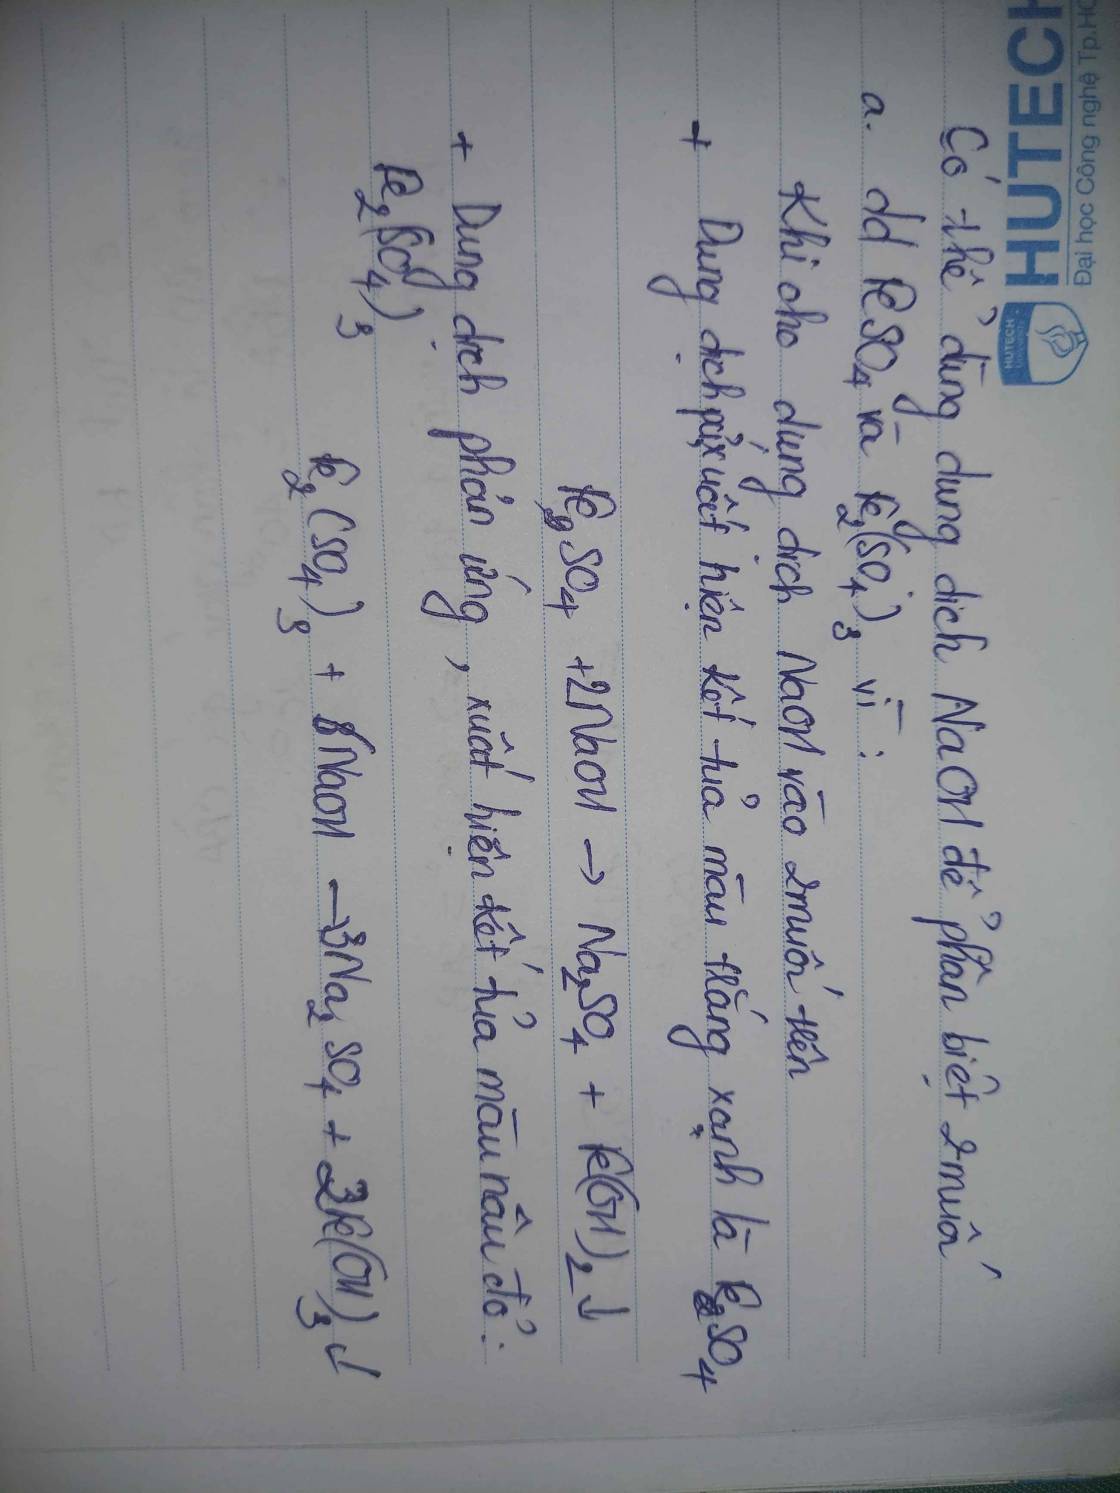 HUTECH
Đại học Công nghệ Tp.HC
HUTECH
Có thể dùng dung dịch NaOH để phân biệt 2 muối
a. dd FeSO4 và Fe2(SO4)3 vì :
Khi cho dung dịch NaOH vào 2 muối trên
+ Dung dịch xuất hiện kết tủa màu trắng xanh là FeSO4
FeSO4 + 2NaOH → Na2SO4 + Fe(OH)2 ↓
+ Dung dịch phản ứng, xuất hiện kết tủa màu nâu đỏ:
Fe2(SO4)3
Fe2(SO4)3 + 6NaOH → 3Na2SO4 + 2Fe(OH)3 ↓